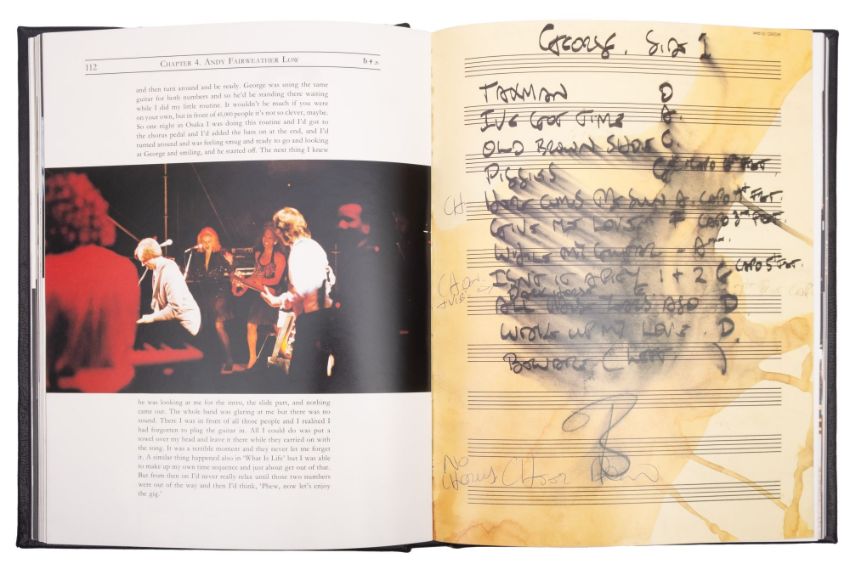 112
CHAPTER 4. ANDY FAIRWEATHER LOW
and then turn around and be ready. George was using the same
guitar for both numbers and so he'd be standing there waiting
while I did my little routine. It wouldn't be much if you were
on your own, but in front of 45,000 people it's not so clever, maybe.
So one night at Osaka I was doing this routine and I'd got to
the chorus pedal and I'd added the bass on at the end, and I'd
turned around and was feeling smug and ready to go and looking
at George and smiling, and he started off. The next thing I knew
he was looking at me for the intro, the slide part, and nothing
came out. The whole band was glaring at me but there was no
sound. There I was in front of all those people and I realised I
had forgotten to plug the guitar in. All I could do was put a
towel over my head and leave it there while they carried on with
the song. It was a terrible moment and they never let me forget
it. A similar thing happened also in 'What Is Life' but I was able
to make up my own time sequence and just about get out of that.
But from then on I'd never really relax until those two numbers
were out of the way and then I'd think, 'Phew, now let's enjoy
the gig.'
GEORGE. Side 1
TAXMAN D
I'VE GOT TIME A.
OLD BROWN SHOE C.
PIGGIES CAPO 1st FRET.
CH HERE COMES THE SUN A. CAPO 7th FRET.
GIVE ME LOVE F CAPO 3rd FRET.
WHILE MY GUITAR - Am.
ISN'T IT A PITY 1 + 2 G CAPO 5th FRET.
Dark Horse
D
WAKE UP MY LOVE. D.
NO
CHORUS